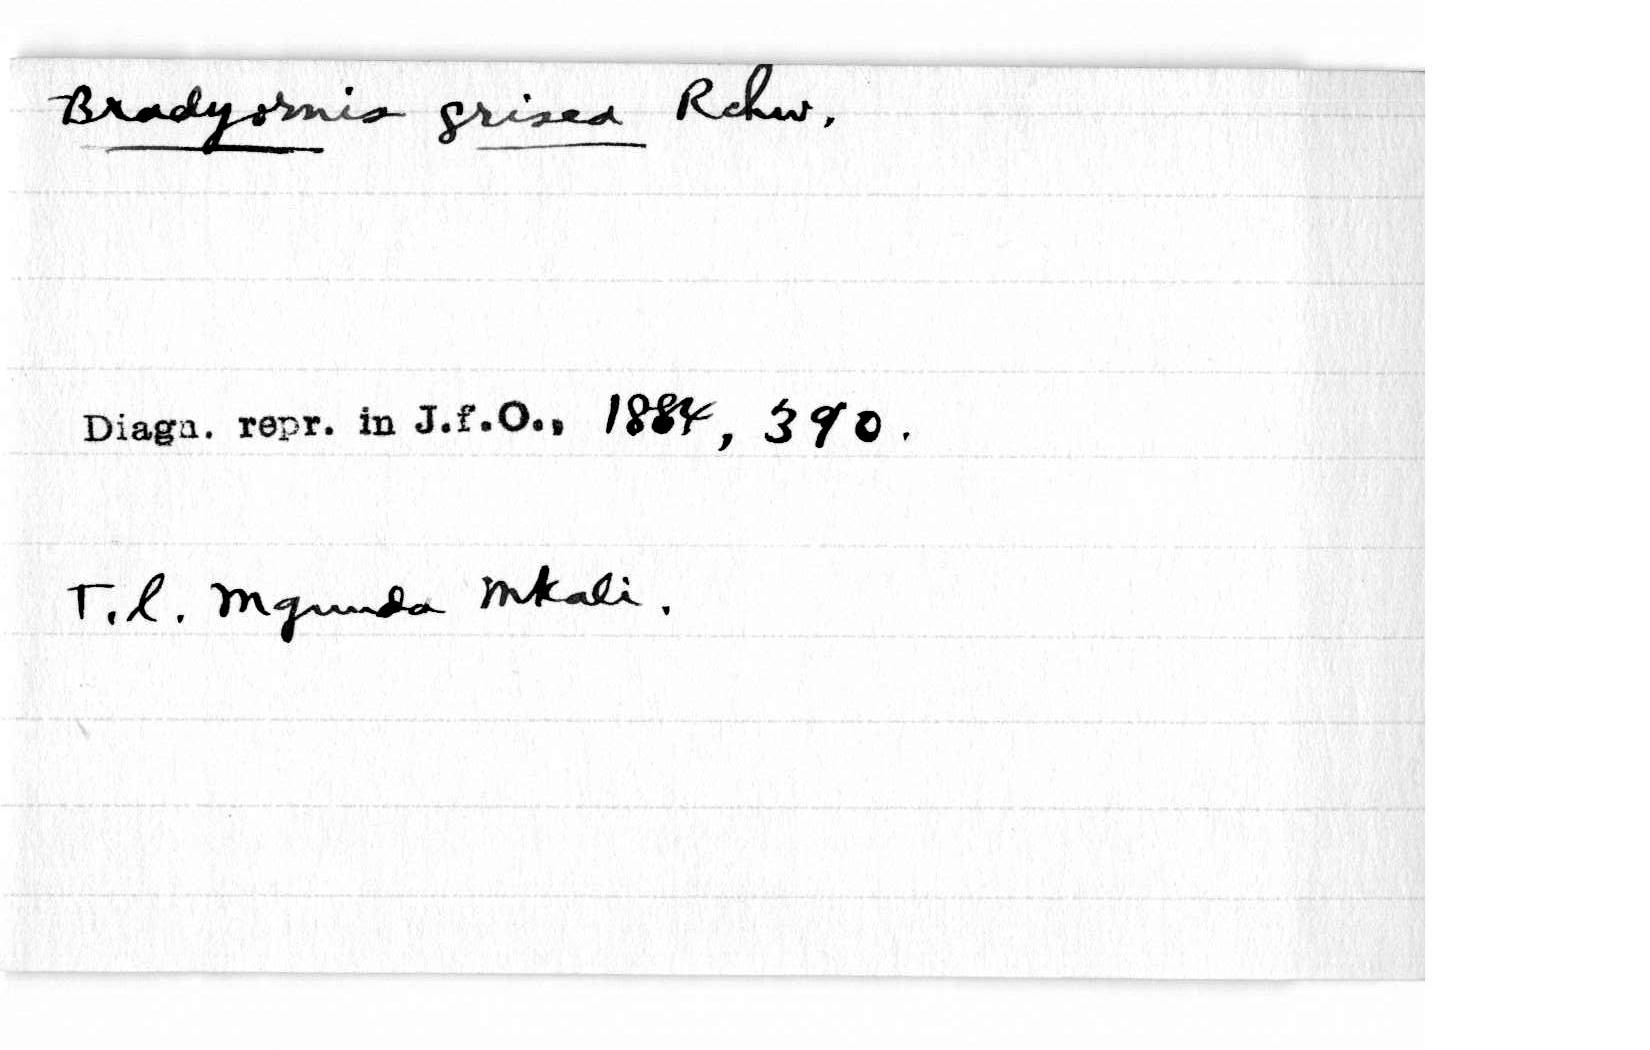 Bradyornis grisea Rchw.
Diagn. repr. in J.f.O., 1884, 390.
T.l. Mgunda Mkali.